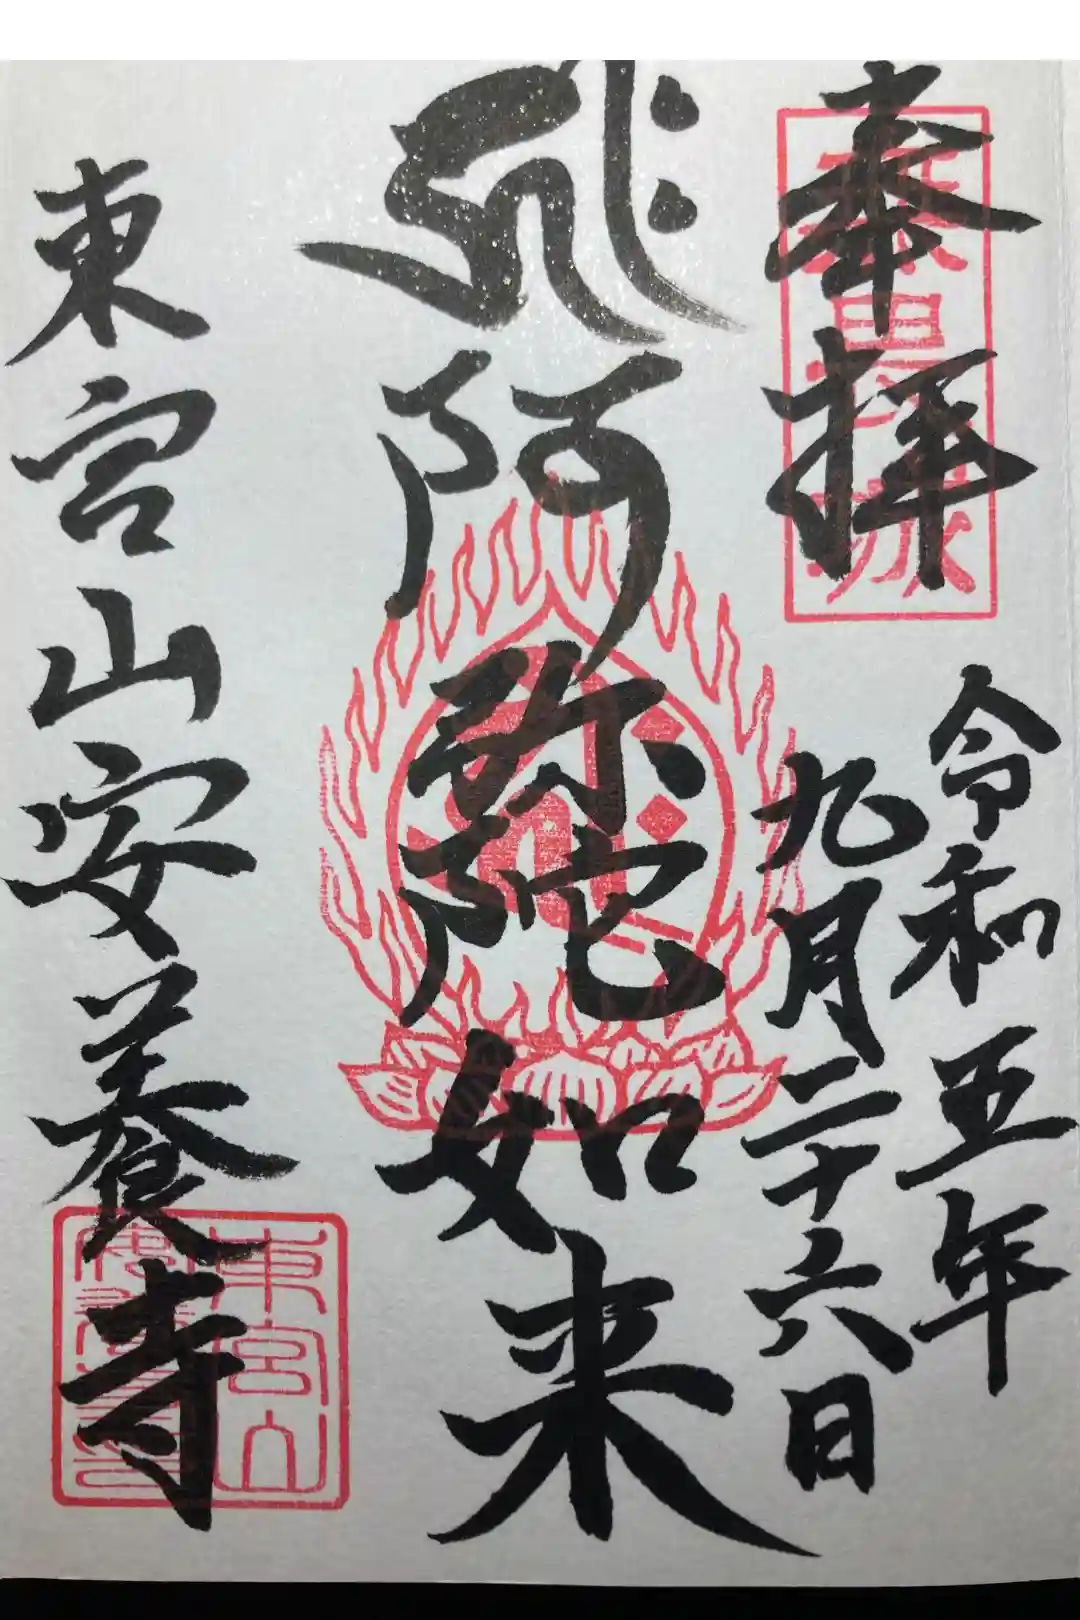 奉拝
令和五年
九月二十六日
𑖮𑖿𑖨𑖱𑖾
阿弥陀如来
東宮山安養寺
東宮山